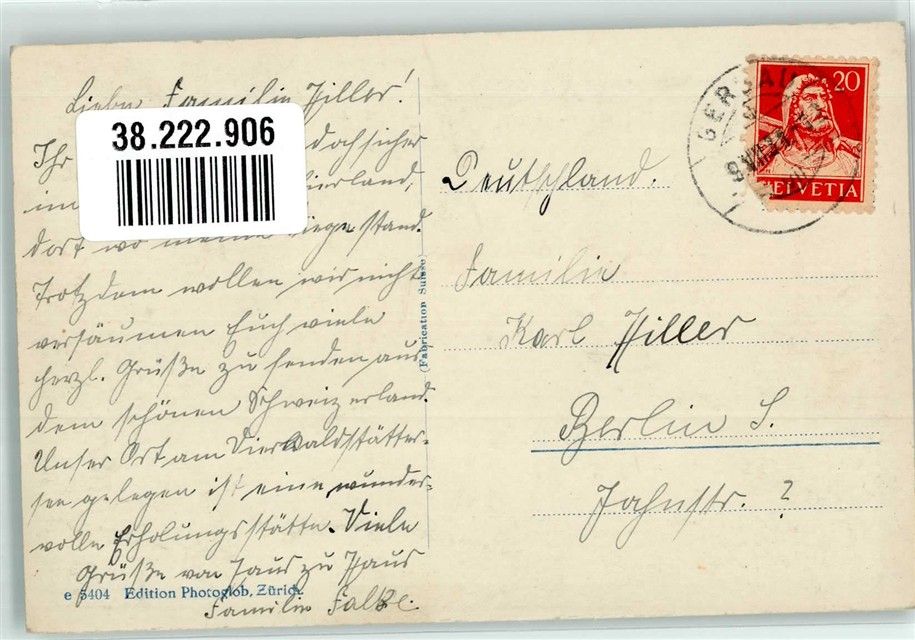 Liebe Familie Hiller!
38.222.906
Ihr doch sicher
im
dort wo meine Wiege stand.
Trotzdem wollen wir nicht
versäumen Euch viele
herzl. Grüße zu senden aus
dem schönen Schweizerland.
Unser Ort am Vierwaldstätter-
see gelegen ist eine wunder-
volle Erholungsstätte. Viele
Grüße von Haus zu Haus
Familie Falke.
e 5404 Edition Photoglob, Zürich.
(Fabrication Suisse)
GERSAU
20
HELVETIA
Deutschland.
Familie
Karl Hiller
Berlin S.
Jahnstr. ?